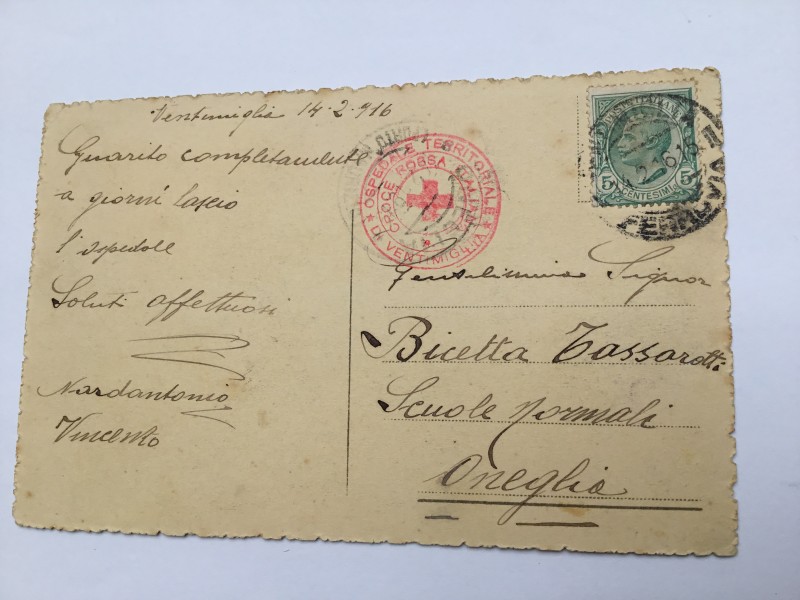 Ventimiglia 14-2-916
Guarito completamente
a giorni lascio
l'ospedale
Saluti affettuosi
Nardantonio
Vincenzo
OSPEDALE TERRITORIALE
CROCE ROSSA ITALIANA
DI VENTIMIGLIA
POSTE ITALIANE
5 CENTESIMI 5
Gentilissima Signor
Bicetta Tassarotti
Scuole Normali
Oneglia